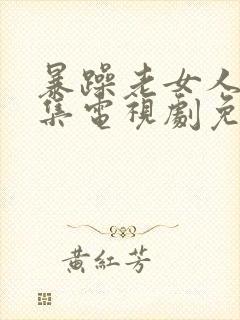 暴躁老女人
集電視劇免
黃紅芳